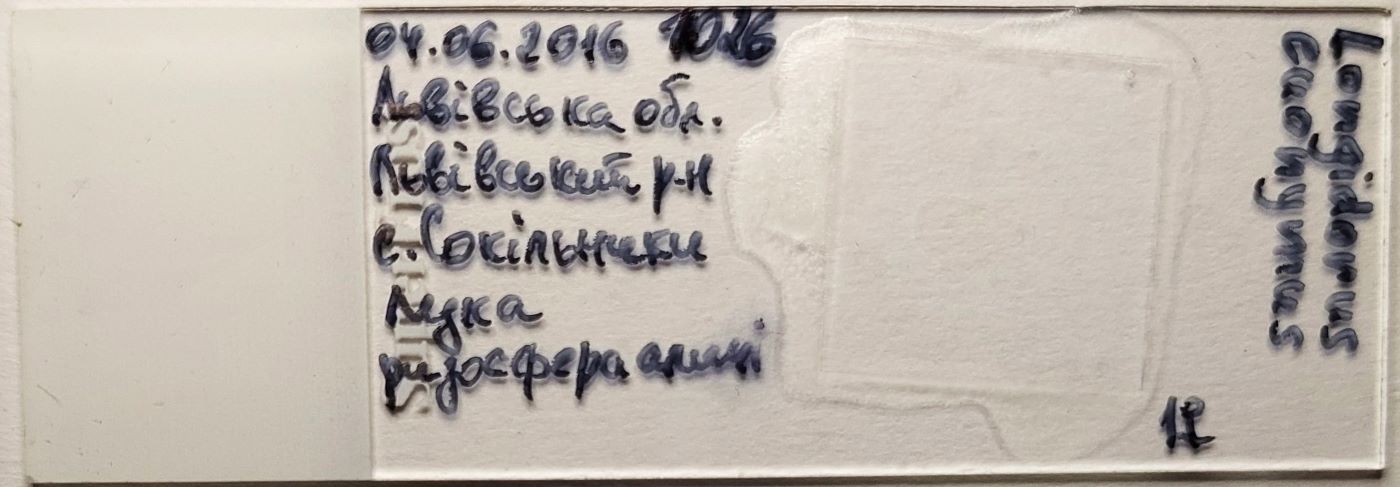 04.06.2016 1026
Львівська обл.
Львівський р-н
с. Сокільники
Лука
ризосфера
Longidorus
euonymus
1♀